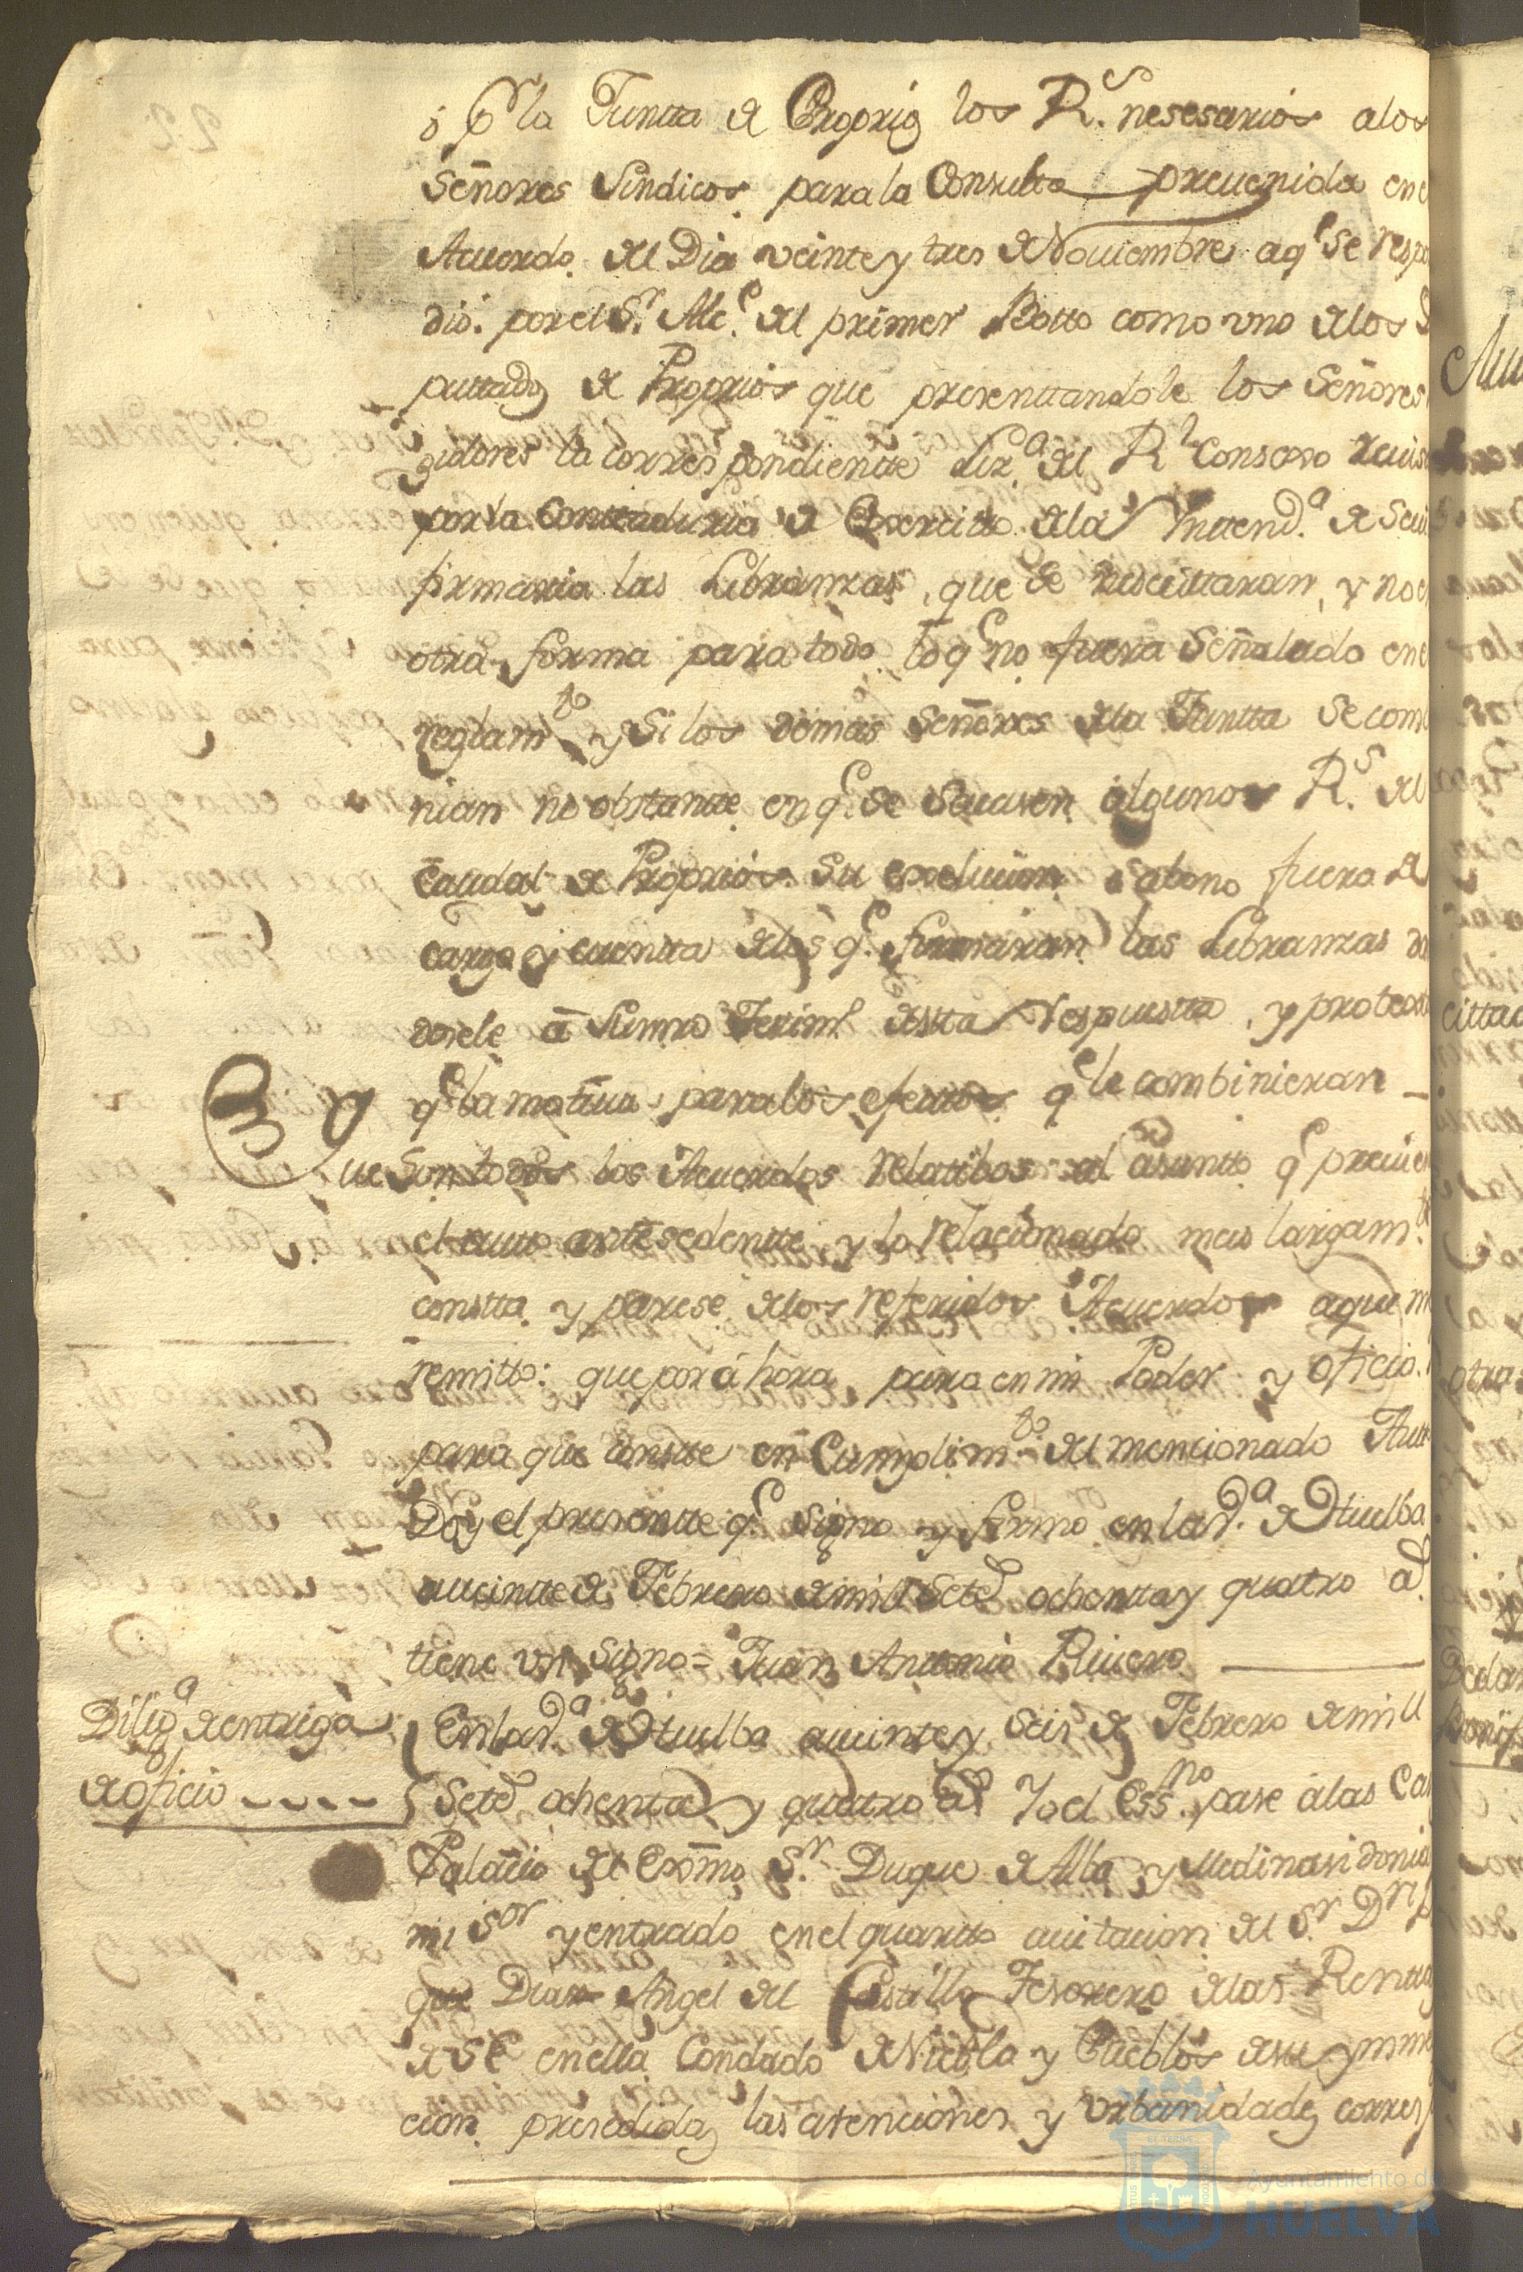 ó pr la Juntta de Proprios los Rs. nesesarios alos
Señores Sindicos para la Consulta preuenida en e
Acuerdo del Dia veinte y tres de Nouiembre aqe se respo
dio por el Sr. Alce. del primer Botto como vno delos D
puttados de Proprios que presenttandole los Señores
gidores la correspondientte Liza. del Rl Consexo
por la Conttaduria de Exercitto dela Inttenda. de Seui
firmaria las Libranzas, que se nesesittaran, y no en
otra forma para todo lo qe no fuera Señalado en e
reglamto y Si los demas Señores dela Juntta se comb
nian no obstantte en qe. se sacasen algunos Rs. del
Caudal de Proprios su exclucion o abono fuera de
cargo y cuentta delos qe. firmaran las Libranzas da
dosele a Sumrd Testimo destta respuestta, y protextta
qe la motiua para los efecttos qe le combinieran
Que Son todos los Acuerdos relatibos al asuntto qe preuien
el autto anttesedentte y lo relacionado mas largamte.
constta y parese delos referidos Acuerdos aque m
remitto: que por áhora para en mi Poder y oficio.
para que constte en Cumplimto. del mencionado Autt
Doy el presentte qe signo y firmo en la Va. de Huelba
a ueintte de Febrero de mill Setes ochenta y quatro as.
tiene vn signo = Juan Anttonio Riuero
Diliga de entrega
de oficio
En la Va. de Huelba a ueinte y Seis de Febrero de mill
Setes ochenta y quatro as Yo el Essno. pase a las Cas
Palacio del Exmo Sr. Duque de Alba y Medinasidonia
mi Sor y entrado en el quartto auitacion del Sr. Dn
que Diaz Angel del Castillo Tesorero de las Rentas
de S E en ella Condado de Niebla y Pueblos de su
cion presedidas las atenciones y Vrbanidades corresp
Ayuntamiento de
HUELVA